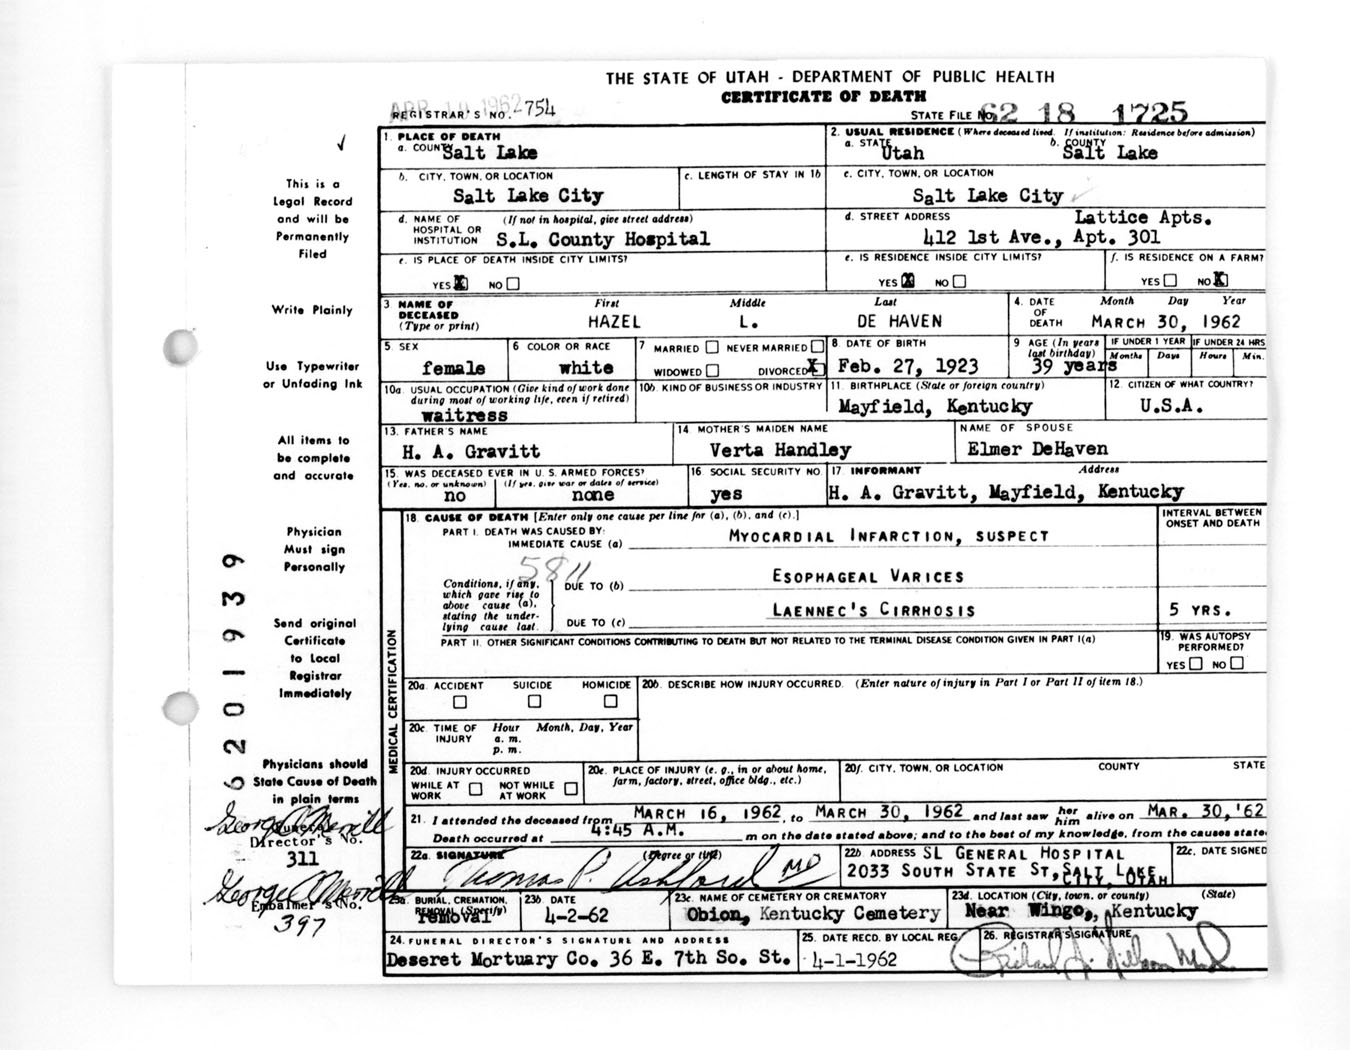 THE STATE OF UTAH - DEPARTMENT OF PUBLIC HEALTH
CERTIFICATE OF DEATH
APR 10 1962
REGISTRAR'S NO. 754
STATE FILE NO. 62 18 1725
This is a
Legal Record
and will be
Permanently
Filed
Write Plainly
Use Typewriter
or Unfading Ink
All items to
be complete
and accurate
Physician
Must sign
Personally
Send original
Certificate
to Local
Registrar
Immediately
Physicians should
State Cause of Death
in plain terms
George C Merrill
Funeral
Director's No.
311
George C Merrill
Embalmer's No.
397
6201939
1. PLACE OF DEATH
a. COUNTY Salt Lake
2. USUAL RESIDENCE (Where deceased lived. If institution: Residence before admission)
a. STATE Utah b. COUNTY Salt Lake
b. CITY, TOWN, OR LOCATION
Salt Lake City
c. LENGTH OF STAY IN 1b
c. CITY, TOWN, OR LOCATION
Salt Lake City
d. NAME OF HOSPITAL OR INSTITUTION (If not in hospital, give street address)
S.L. County Hospital
d. STREET ADDRESS Lattice Apts.
412 1st Ave., Apt. 301
e. IS PLACE OF DEATH INSIDE CITY LIMITS?
YES X NO
e. IS RESIDENCE INSIDE CITY LIMITS?
YES X NO
f. IS RESIDENCE ON A FARM?
YES NO X
3 NAME OF DECEASED (Type or print) First Middle Last
HAZEL L. DE HAVEN
4. DATE OF DEATH Month Day Year
MARCH 30, 1962
5. SEX
female
6 COLOR OR RACE
white
7 MARRIED NEVER MARRIED
WIDOWED DIVORCED X
8 DATE OF BIRTH
Feb. 27, 1923
9 AGE (In years last birthday)
39 years
IF UNDER 1 YEAR Months Days
IF UNDER 24 HRS Hours Min.
10a. USUAL OCCUPATION (Give kind of work done during most of working life, even if retired)
waitress
10b. KIND OF BUSINESS OR INDUSTRY
11. BIRTHPLACE (State or foreign country)
Mayfield, Kentucky
12. CITIZEN OF WHAT COUNTRY?
U.S.A.
13. FATHER'S NAME
H. A. Gravitt
14 MOTHER'S MAIDEN NAME
Verta Handley
NAME OF SPOUSE
Elmer DeHaven
15. WAS DECEASED EVER IN U. S. ARMED FORCES?
(Yes, no, or unknown) (If yes, give war or dates of service)
no none
16 SOCIAL SECURITY NO.
yes
17 INFORMANT Address
H. A. Gravitt, Mayfield, Kentucky
MEDICAL CERTIFICATION
18. CAUSE OF DEATH [Enter only one cause per line for (a), (b), and (c).]
INTERVAL BETWEEN ONSET AND DEATH
PART I. DEATH WAS CAUSED BY:
IMMEDIATE CAUSE (a) MYOCARDIAL INFARCTION, SUSPECT
5811
Conditions, if any, which gave rise to above cause (a), stating the underlying cause last.
DUE TO (b) ESOPHAGEAL VARICES
DUE TO (c) LAENNEC'S CIRRHOSIS 5 YRS.
PART II. OTHER SIGNIFICANT CONDITIONS CONTRIBUTING TO DEATH BUT NOT RELATED TO THE TERMINAL DISEASE CONDITION GIVEN IN PART I(a)
19. WAS AUTOPSY PERFORMED?
YES NO
20a. ACCIDENT SUICIDE HOMICIDE
20b. DESCRIBE HOW INJURY OCCURRED. (Enter nature of injury in Part I or Part II of item 18.)
20c. TIME OF INJURY Hour Month, Day, Year
a. m.
p. m.
20d. INJURY OCCURRED
WHILE AT WORK NOT WHILE AT WORK
20e. PLACE OF INJURY (e. g., in or about home, farm, factory, street, office bldg., etc.)
20f. CITY, TOWN, OR LOCATION COUNTY STATE
21. I attended the deceased from MARCH 16, 1962, to MARCH 30, 1962 and last saw her him alive on MAR. 30, '62
Death occurred at 4:45 A.M. m on the date stated above; and to the best of my knowledge, from the causes state
22a. SIGNATURE (Degree or title)
Thomas P. Ashford MD
22b. ADDRESS SL GENERAL HOSPITAL
2033 SOUTH STATE ST, SALT LAKE CITY, UTAH
22c. DATE SIGNED
23a. BURIAL, CREMATION, REMOVAL (Specify)
removal
23b. DATE
4-2-62
23c. NAME OF CEMETERY OR CREMATORY
Obion, Kentucky Cemetery
23d. LOCATION (City, town, or county) (State)
Near Wingo, Kentucky
24. FUNERAL DIRECTOR'S SIGNATURE AND ADDRESS
Deseret Mortuary Co. 36 E. 7th So. St.
25. DATE RECD. BY LOCAL REG.
4-1-1962
26. REGISTRAR'S SIGNATURE